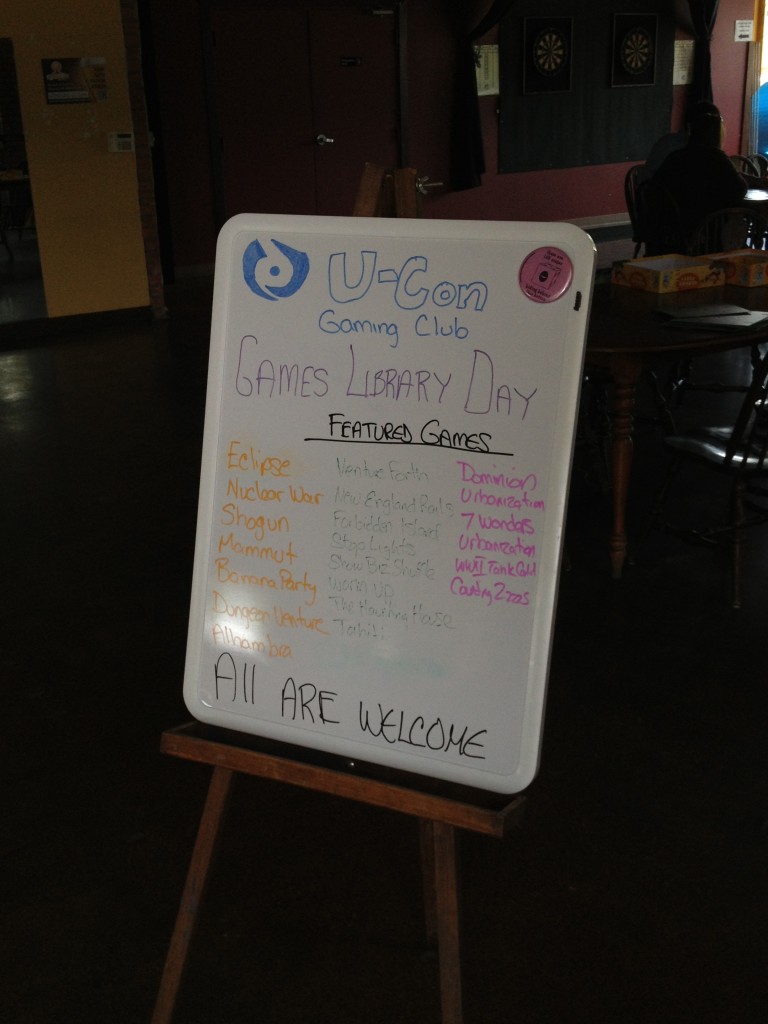 U-Con
Gaming Club
GAMES LIBRARY DAY
FEATURED GAMES
Eclipse
Nuclear War
Shogun
Mammut
Banana Party
Dungeon Venture
Alhambra
Venture Forth
New England Rails
Forbidden Island
Stop Lights
Show Biz Shuffle
Worm Up
The Haunting House
Tahiti
Dominion
Urbanization
7 Wonders
Urbanization
WWII Tank
All ARE WELCOME